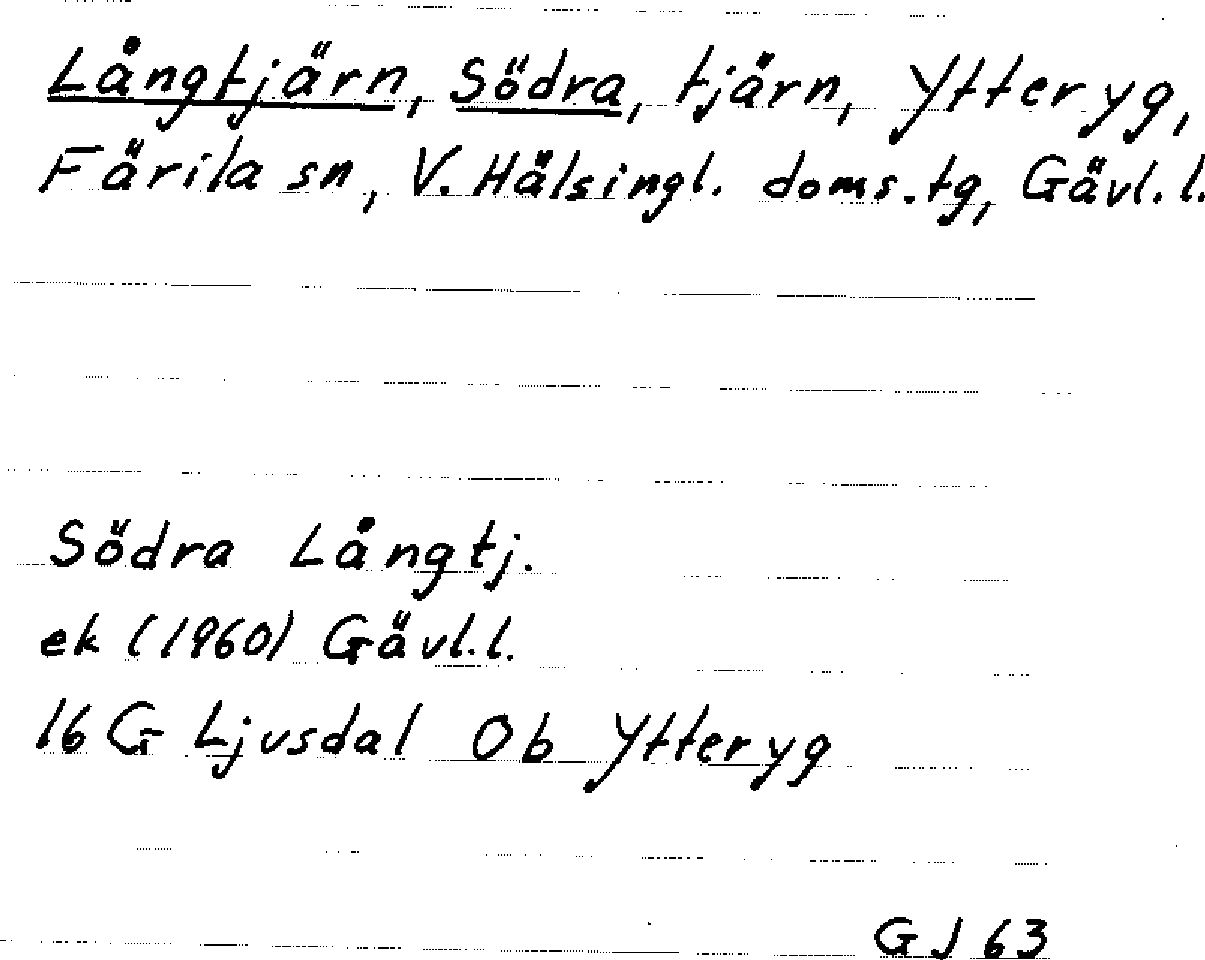 Långtjärn, Södra, tjärn, Ytteryg,
Färila sn, V. Hälsingl. doms. tg, Gävl. l.
Södra Långtj.
ek (1960) Gävl. l.
16 G Ljusdal 0b Ytteryg
GJ 63